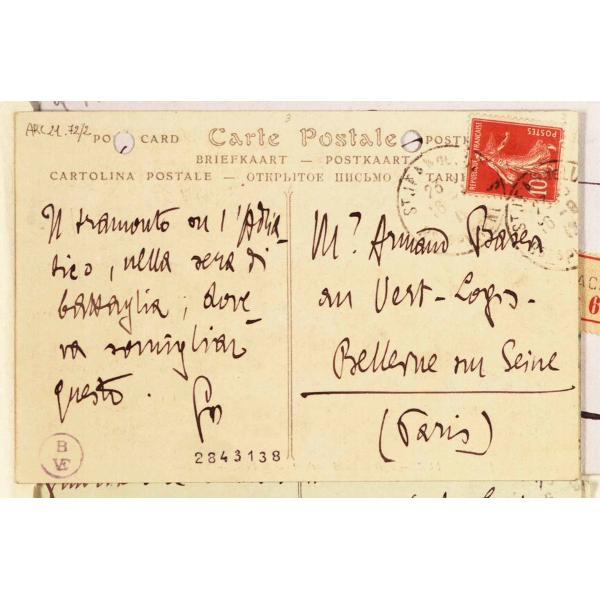 ARC 21.72/2
3
POST CARD Carte Postale POSTK
BRIEFKAART — POSTKAART
CARTOLINA POSTALE — ОТКРЫТОЕ ПИСЬМО — TARJE
REPUBLIQUE FRANÇAISE
POSTES
10
Il tramonto su l'Adria-
tico, nella sera di
battaglia, dove-
va somigliar
questo.
Mr. Armand
au Vert-Logis-
Bellerive sur Seine
(Paris)
2843138
B
VE
6